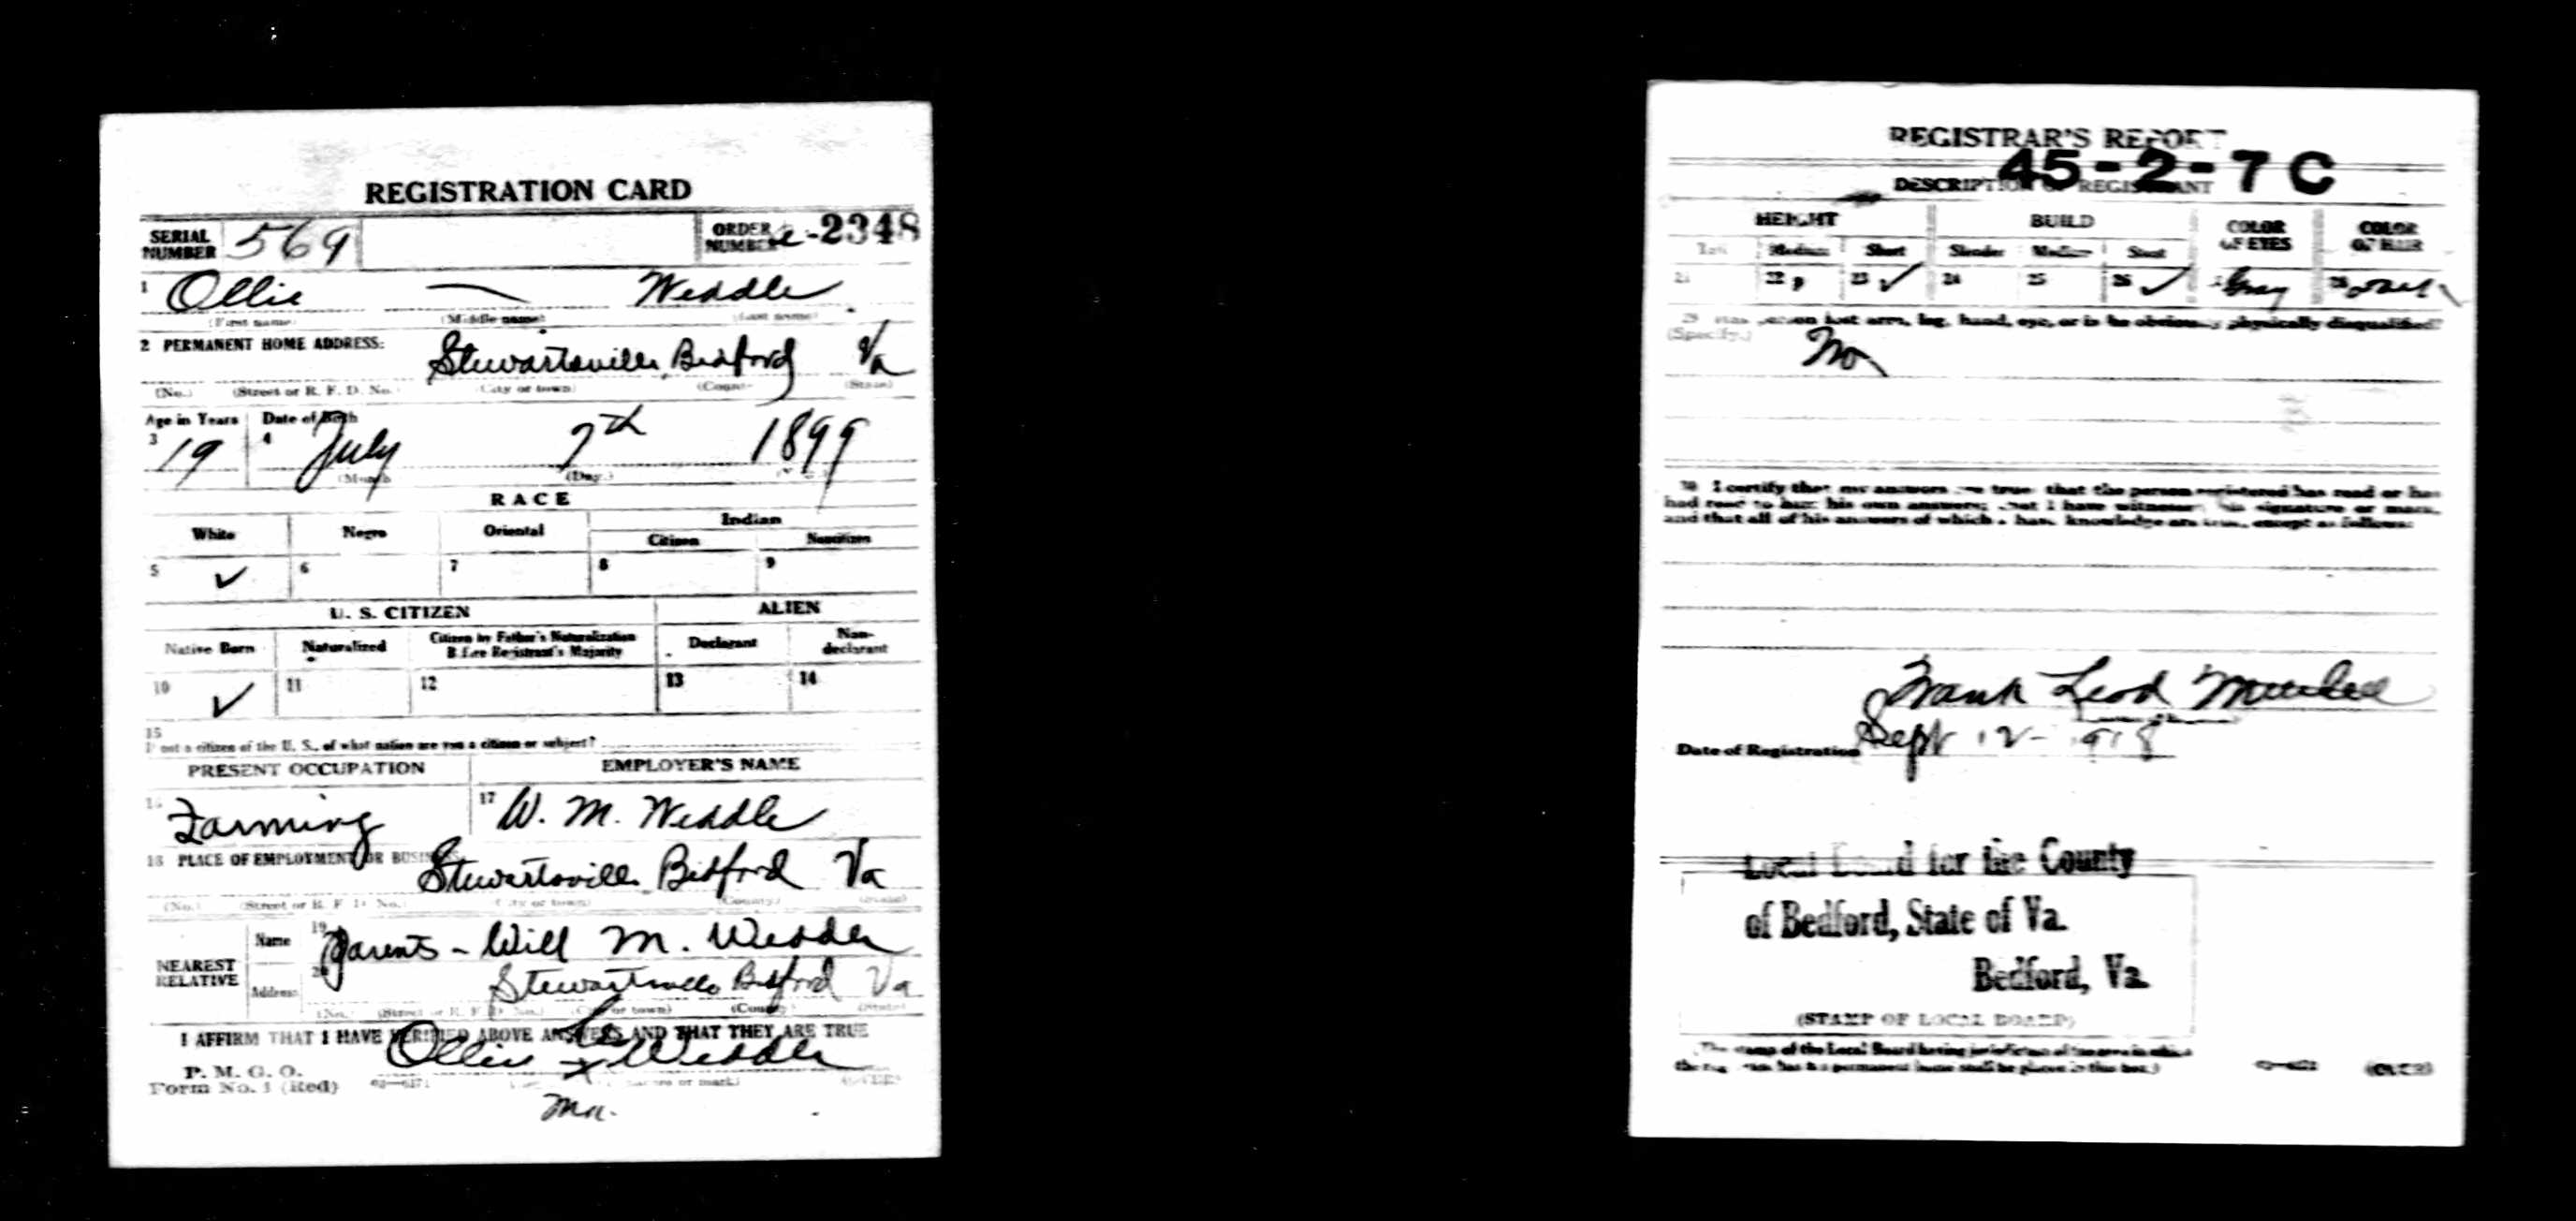 REGISTRATION CARD
SERIAL NUMBER 569 ORDER NUMBER -2348
1 Ollie — Weddle
(First name) (Middle name) (Last name)
2 PERMANENT HOME ADDRESS: Stewartsville, Bedford Va
(No.) (Street or R. F. D. No.) (City or town) (County) (State)
Age in Years Date of Birth
3 19 4 July 7th 1899
(Month) (Day.)
RACE
White Negro Oriental Indian
Citizen Noncitizen
5 ✓ 6 7 8 9
U. S. CITIZEN ALIEN
Native Born Naturalized Citizen by Father's Naturalization Before Registrant's Majority Declarant Non-declarant
10 ✓ 11 12 13 14
15
If not a citizen of the U. S., of what nation are you a citizen or subject?
PRESENT OCCUPATION EMPLOYER'S NAME
16 Farming 17 W. M. Weddle
18 PLACE OF EMPLOYMENT OR BUSINESS: Stewartsville Bedford Va
(No.) (Street or R. F. D. No.) (City or town) (County) (State)
NEAREST RELATIVE Name 19 Parents - Will M. Weddle
Address 20 Stewartsville Bedford Va
(No.) (Street or R. F. D. No.) (City or town) (County) (State)
I AFFIRM THAT I HAVE VERIFIED ABOVE ANSWERS AND THAT THEY ARE TRUE
Ollie x Weddle
P. M. G. O.
Form No. 1 (Red) (OVER)
REGISTRAR'S REPORT
45-2-7 C
DESCRIPTION OF REGISTRANT
HEIGHT BUILD COLOR OF EYES COLOR OF HAIR
Tall Medium Short Slender Medium Stout
21 22 23 ✓ 24 25 26 ✓ Gray 28 Dark
29 Has person lost arm, leg, hand, eye, or is he obviously physically disqualified?
(Specify.) No
30 I certify that my answers are true; that the person registered has read or has
had read to him his own answers; that I have witnessed his signature or mark,
and that all of his answers of which I have knowledge are true, except as follows:
Frank
Date of Registration Sept 12 - 1918
Local Board for the County
of Bedford, State of Va.
Bedford, Va.
(STAMP OF LOCAL BOARD)
The stamp of the Local Board having jurisdiction of the area in which
the registrant has his permanent home shall be placed in this box.)
(OVER)